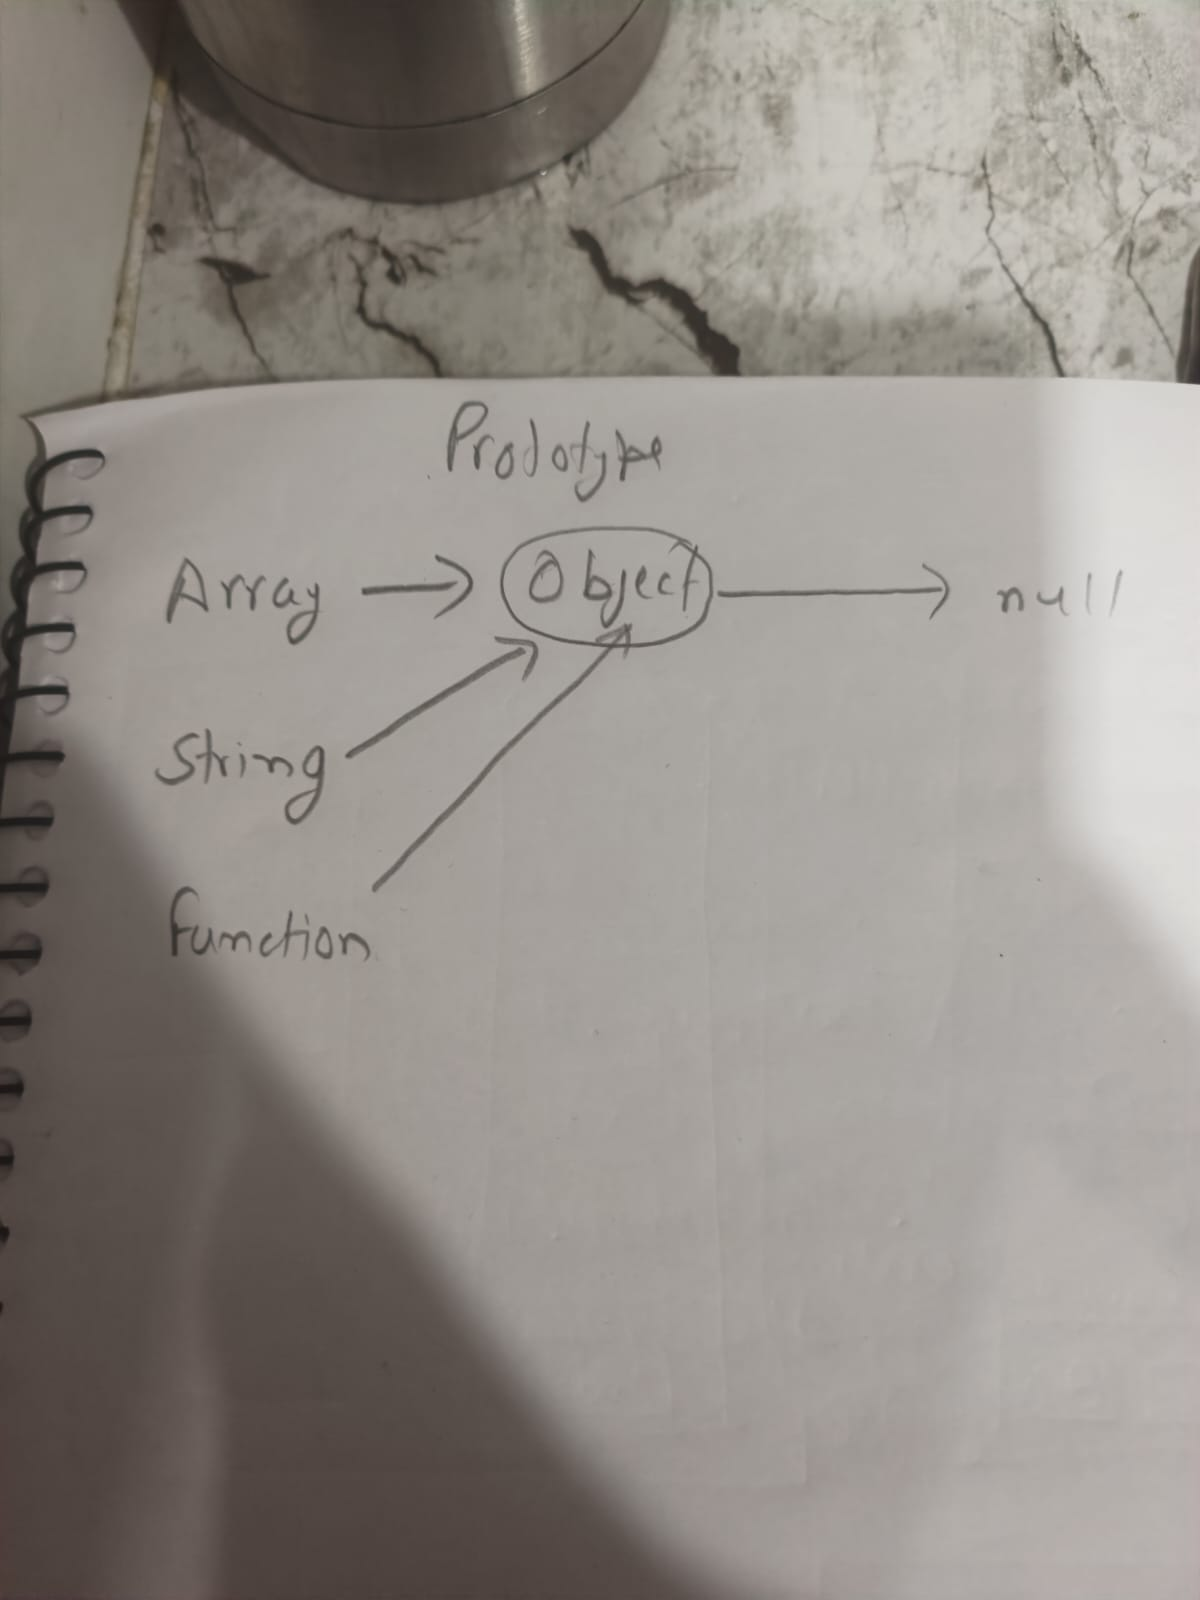 Prototype
Array → Object → null
String
function